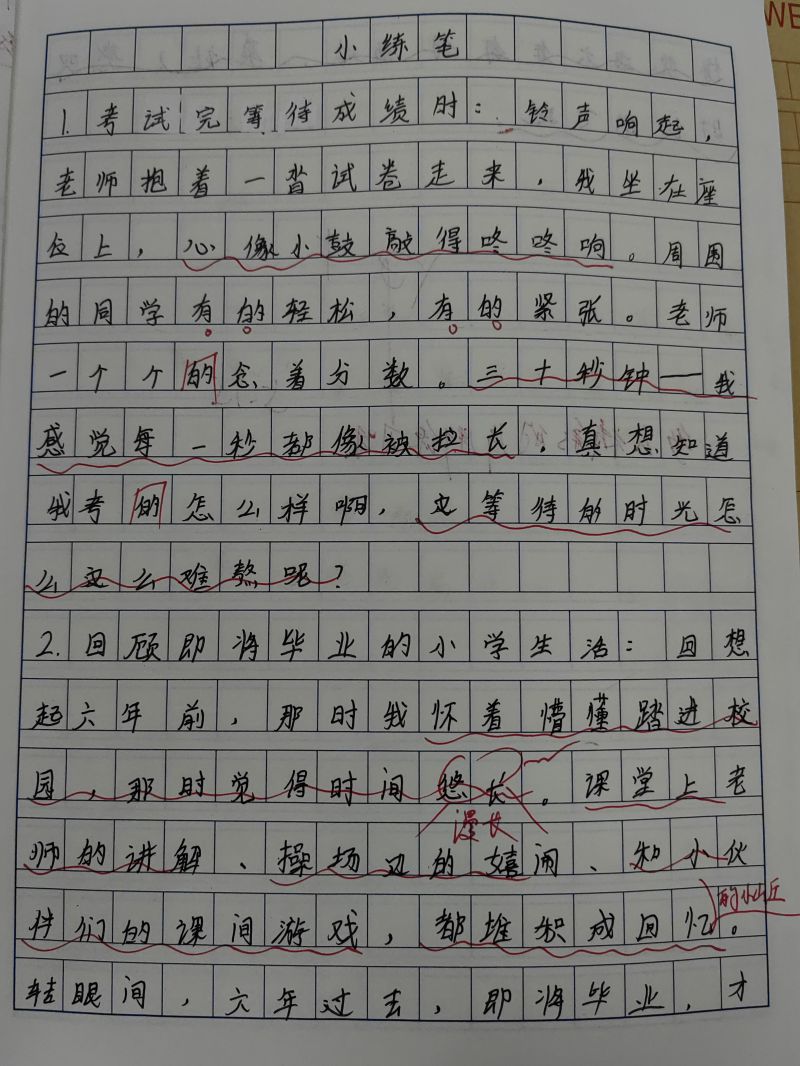 小练笔
1.考试完等待成绩时：铃声响起，
老师抱着一沓试卷走来，我坐在座
位上，心像小鼓敲得咚咚响。周围
的同学有的轻松，有的紧张。老师
一个个的念着分数。三十秒钟——我
感觉每一秒都像被拉长，真想知道
我考的怎么样啊，这等待的时光怎
么这么难熬呢？
2.回顾即将毕业的小学生活：回想
起六年前，那时我怀着懵懂踏进校
园，那时觉得时间悠长。课堂上老
漫长
师的讲解、操场边的嬉闹、和小伙
的小山丘
伴们的课间游戏，都堆积成回忆。
转眼间，六年过去，即将毕业，才
WE